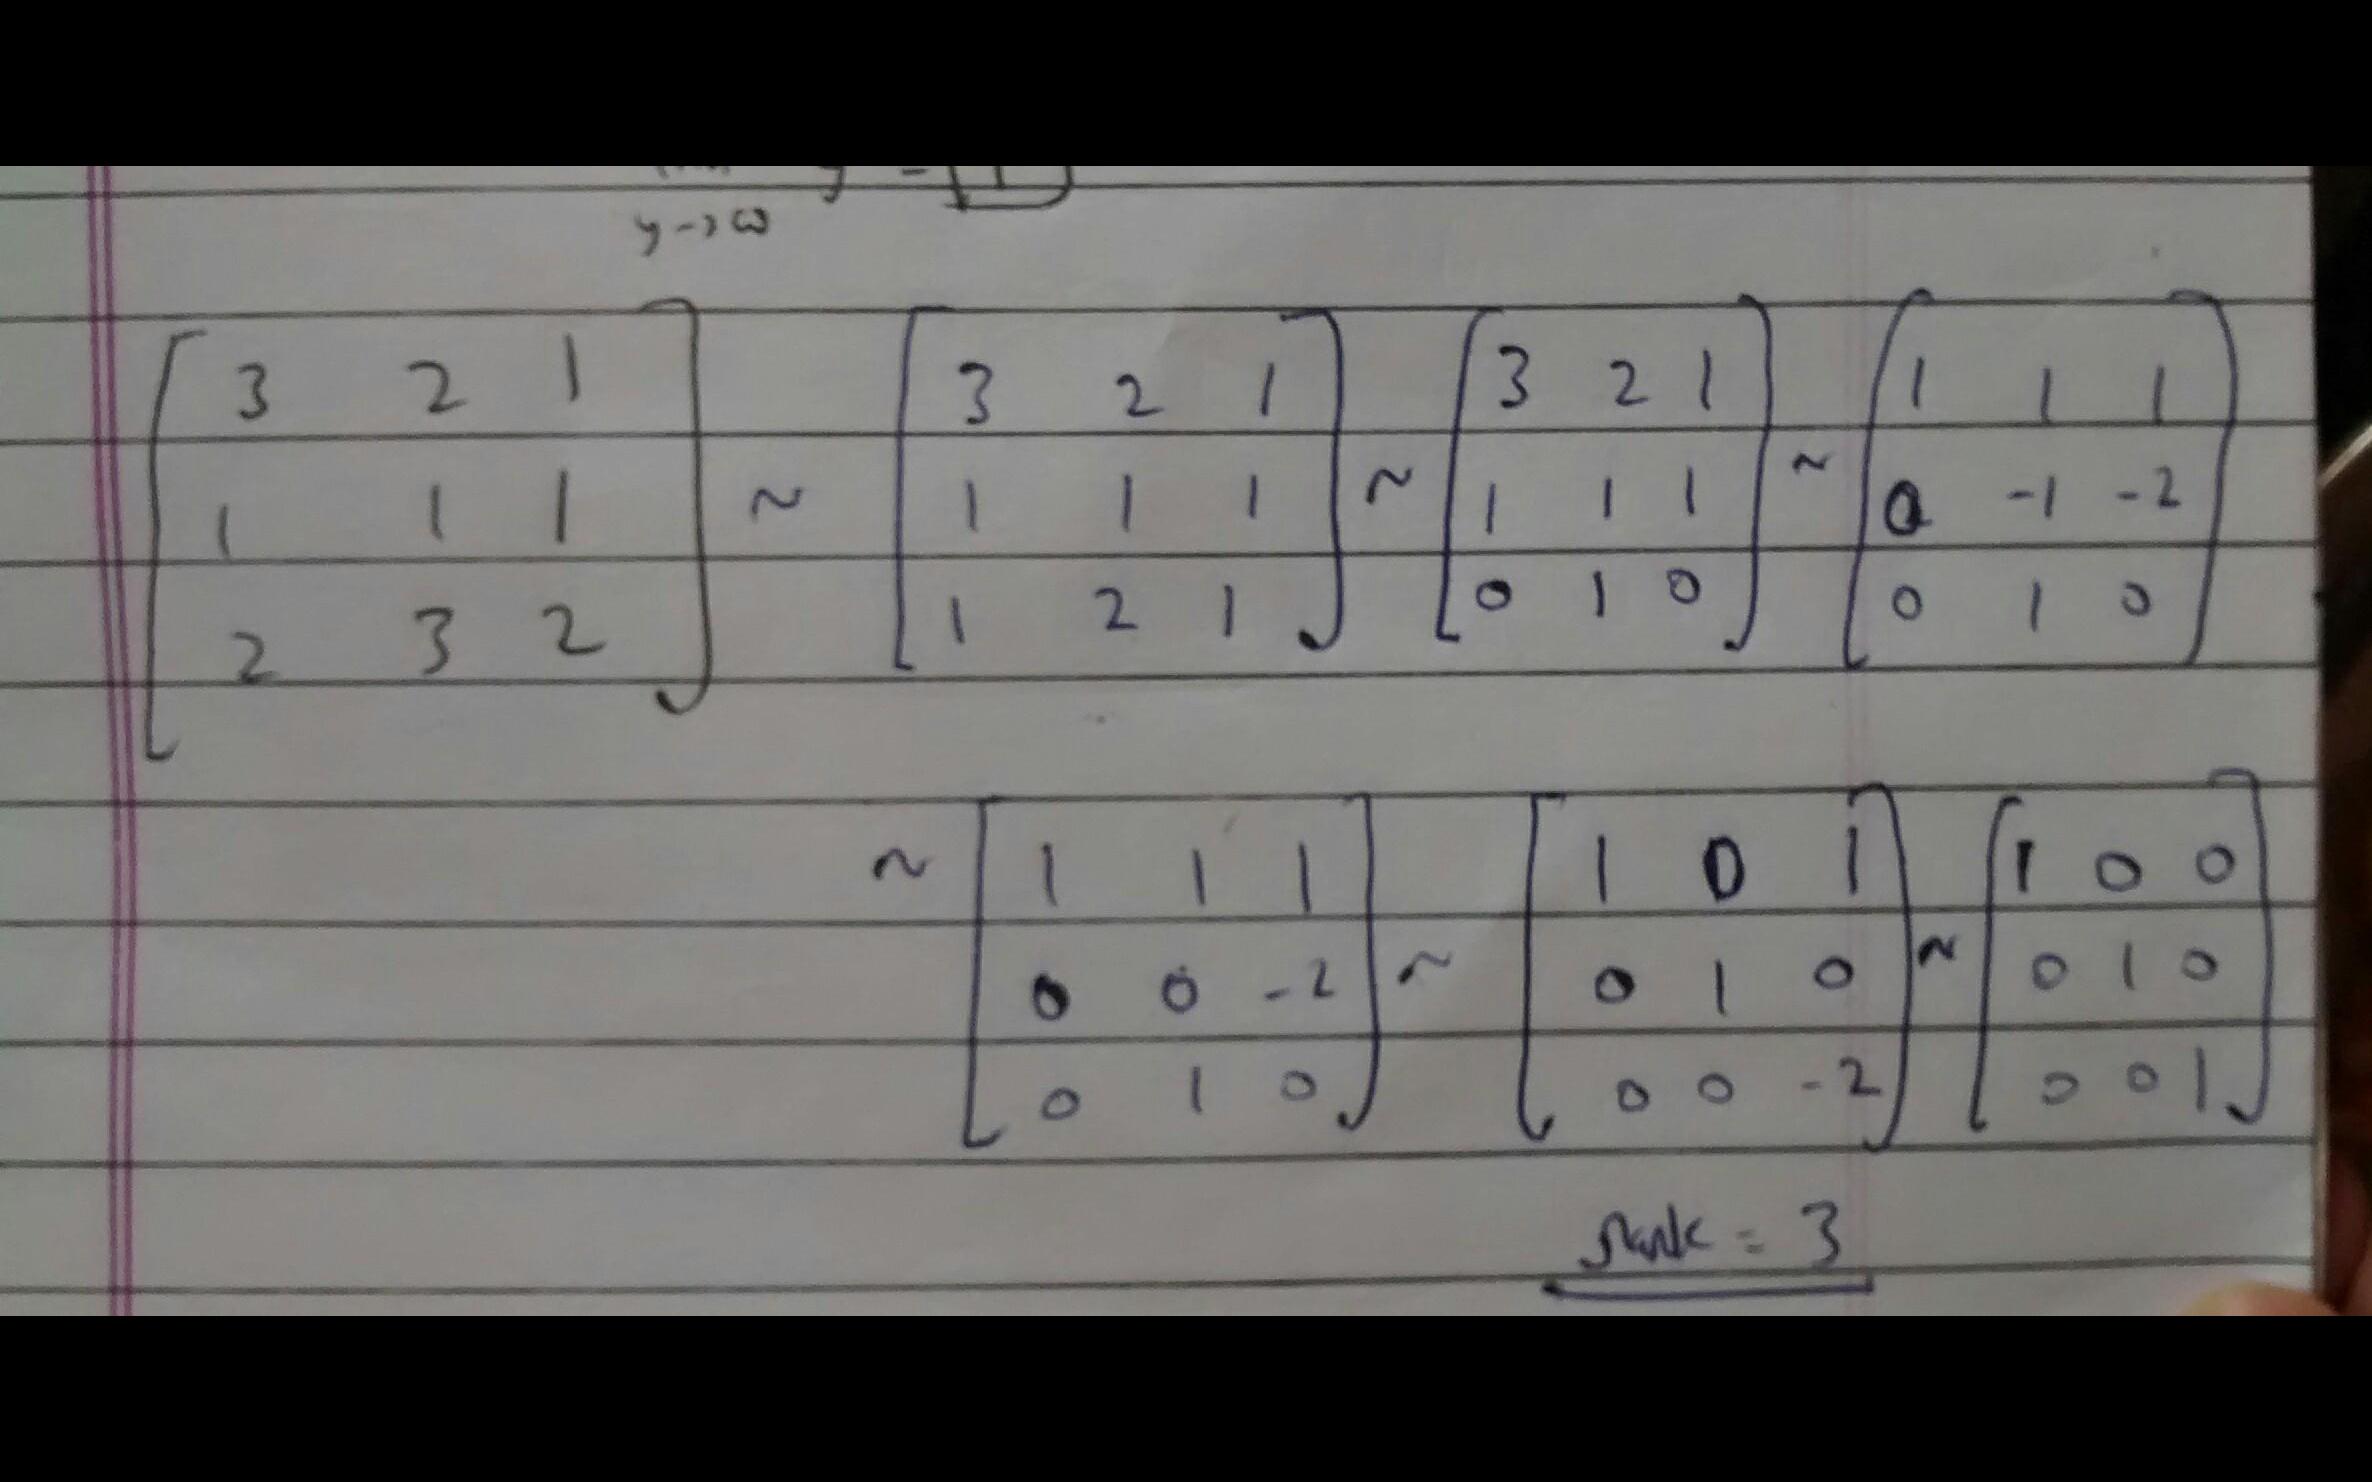 y→∞
[3 2 1; 1 1 1; 2 3 2] ~ [3 2 1; 1 1 1; 1 2 1] ~ [3 2 1; 1 1 1; 0 1 0] ~ [1 1 1; 0 -1 -2; 0 1 0]
~ [1 1 1; 0 0 -2; 0 1 0] ~ [1 0 1; 0 1 0; 0 0 -2] ~ [1 0 0; 0 1 0; 0 0 1]
Rank = 3